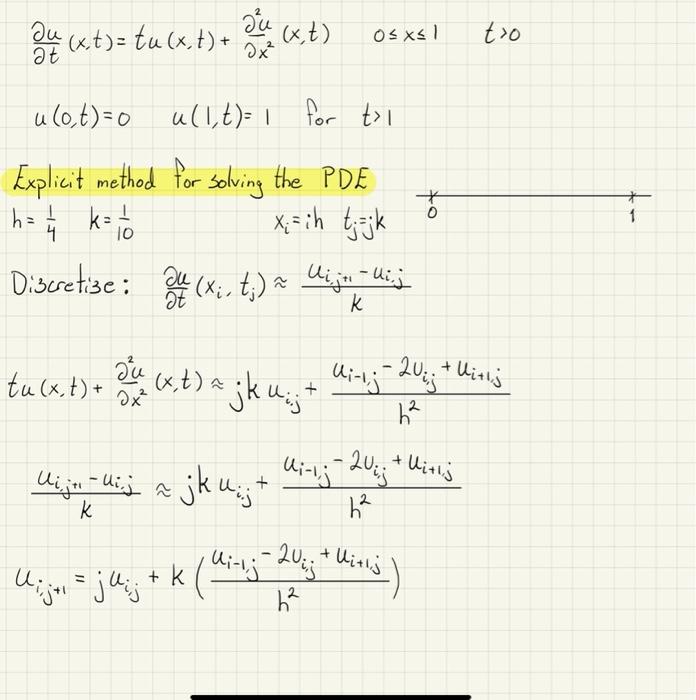 ∂u/∂t (x,t) = tu(x,t) + ∂²u/∂x² (x,t) 0≤x≤1 t>0
u(0,t)=0 u(1,t)=1 for t>1
Explicit method for solving the PDE
h=1/4 k=1/10 xᵢ=ih tⱼ=jk 0 1
Discretise: ∂u/∂t (xᵢ,tⱼ) ≈ (uᵢ,ⱼ₊₁ - uᵢ,ⱼ)/k
tu(x,t) + ∂²u/∂x² (x,t) ≈ jk uᵢ,ⱼ + (uᵢ₋₁,ⱼ - 2uᵢⱼ + uᵢ₊₁,ⱼ)/h²
(uᵢ,ⱼ₊₁ - uᵢ,ⱼ)/k ≈ jk uᵢⱼ + (uᵢ₋₁,ⱼ - 2uᵢⱼ + uᵢ₊₁,ⱼ)/h²
uᵢ,ⱼ₊₁ = j uᵢⱼ + k ((uᵢ₋₁,ⱼ - 2uᵢⱼ + uᵢ₊₁,ⱼ)/h²)